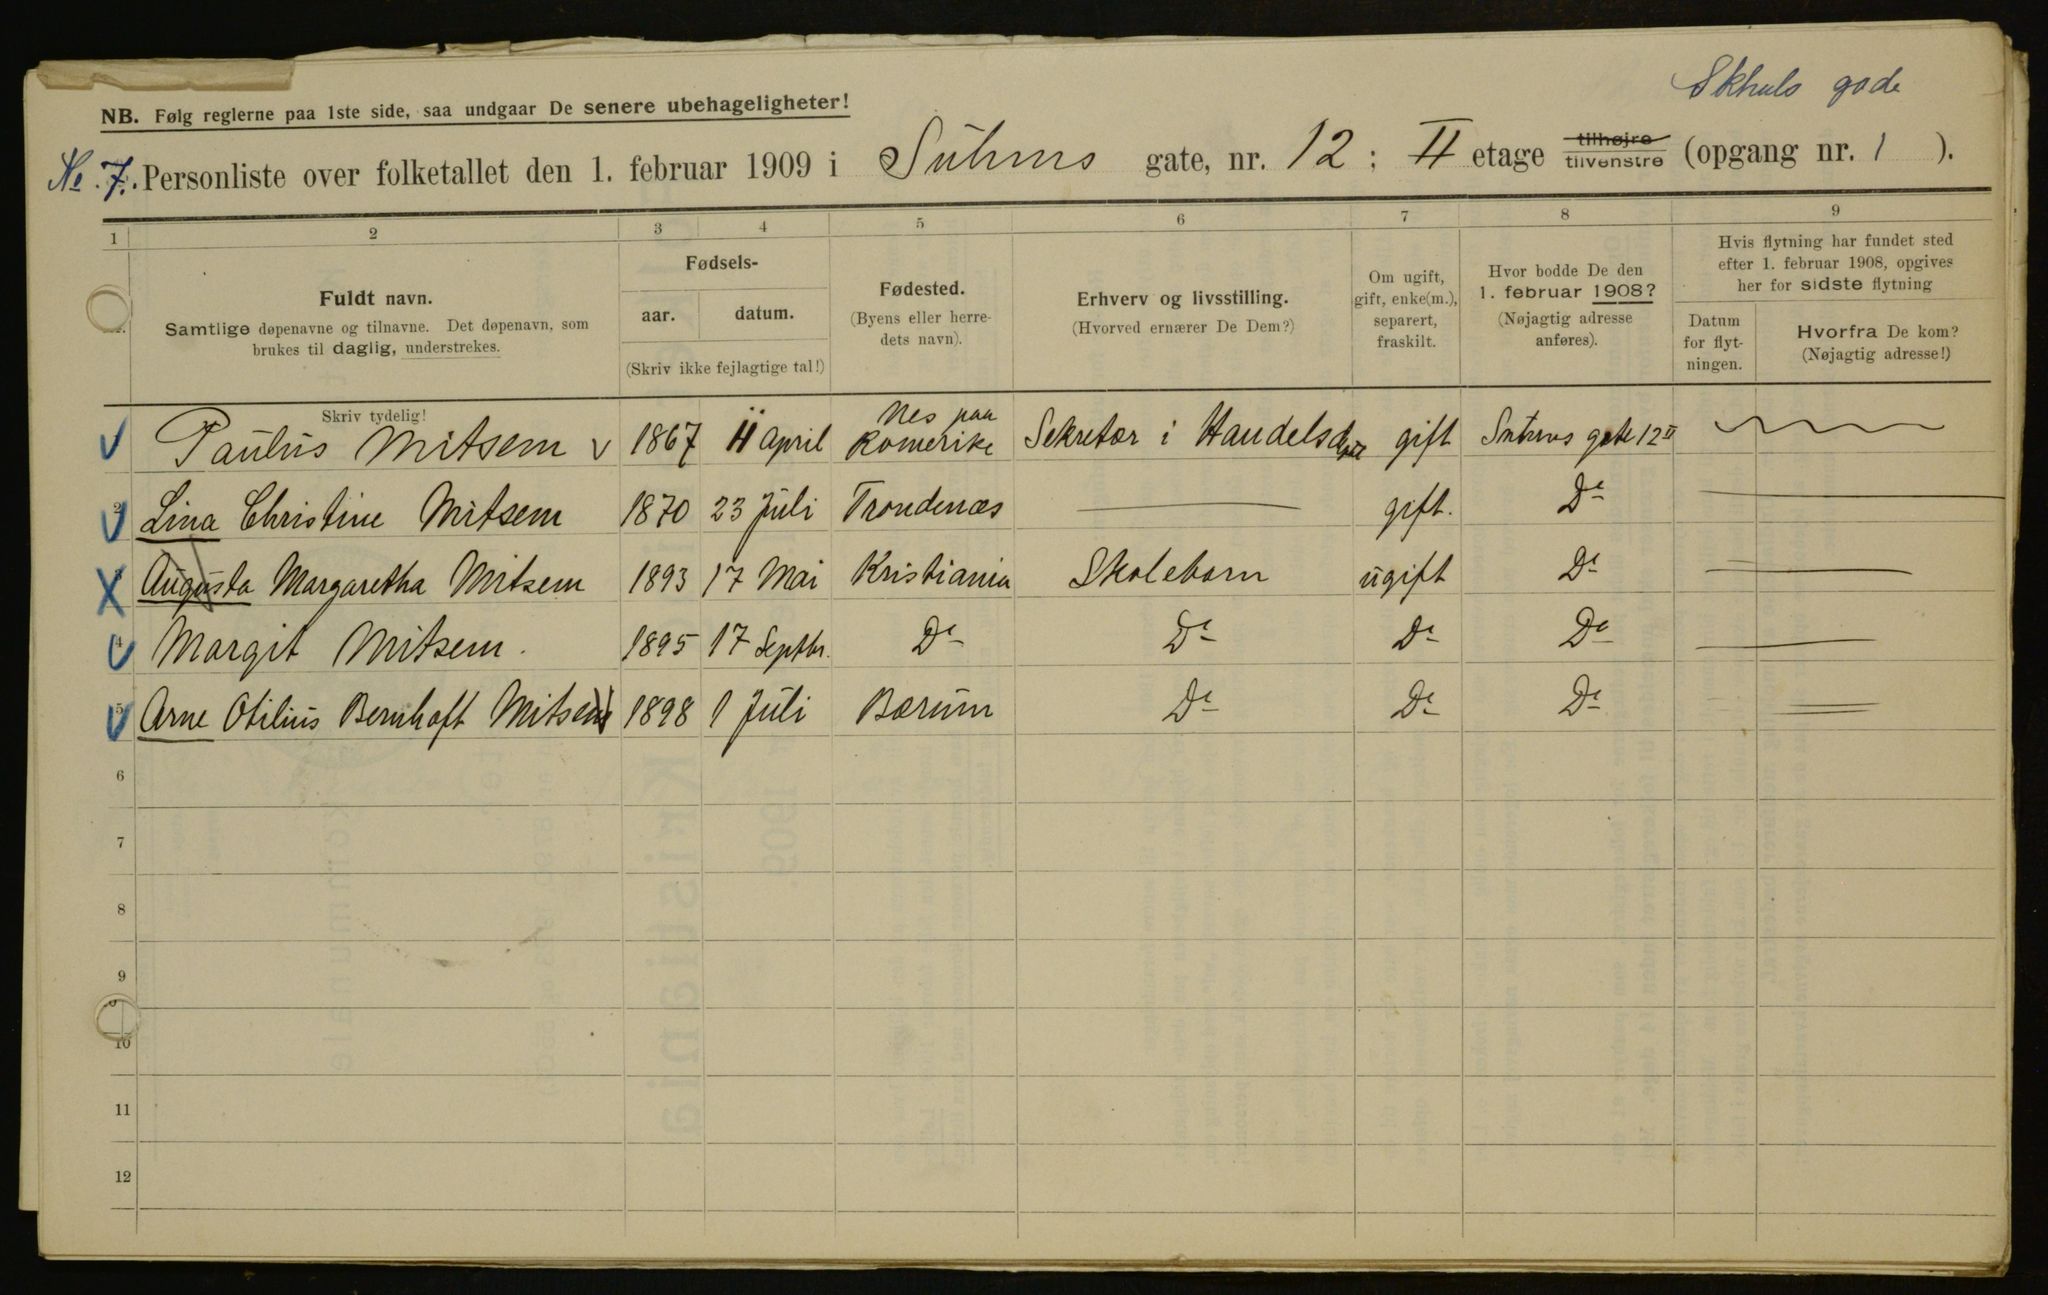 Skhuls gade
NB. Følg reglerne paa 1ste side, saa undgaar De senere ubehageligheter!
No. 7. Personliste over folketallet den 1. februar 1909 i Suhms gate, nr. 12 ; II etage tilhøjre tilvenstre (opgang nr. 1 ).
1 2 3 4 5 6 7 8 9
Fuldt navn.
Samtlige døpenavne og tilnavne. Det døpenavn, som
brukes til daglig, understrekes.
Skriv tydelig!
Fødsels-
aar. datum.
(Skriv ikke fejlagtige tal!)
Fødested.
(Byens eller herre-
dets navn).
Erhverv og livsstilling.
(Hvorved ernærer De Dem?)
Om ugift,
gift, enke(m.),
separert,
fraskilt.
Hvor bodde De den
1. februar 1908?
(Nøjagtig adresse
anføres).
Hvis flytning har fundet sted
efter 1. februar 1908, opgives
her for sidste flytning
Datum
for flyt-
ningen.
Hvorfra De kom?
(Nøjagtig adresse!)
Paulus Mitsem 1867 11 april Nes paa Romerike Sekretær i Handelsdep gift Suhms gate 12 II
2 Lina Christine Mitsem 1870 23 Juli Trondenæs gift. Do
Augusta Margaretha Mitsem 1893 17 Mai Kristiania Skolebarn ugift Do
4 Margit Mitsem. 1895 17 Septbr. Do Do Do Do
5 Arne Otilius Bernhoft Mitsem 1898 1 Juli Bærum Do Do Do
6
7
8
9
10
11
12